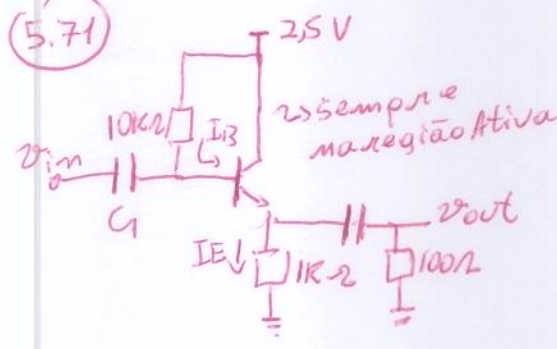 5.71
2,5 V
10KΩ
IB
↳ sempre
na região Ativa
vin
C1
vout
IE
1KΩ
100Ω